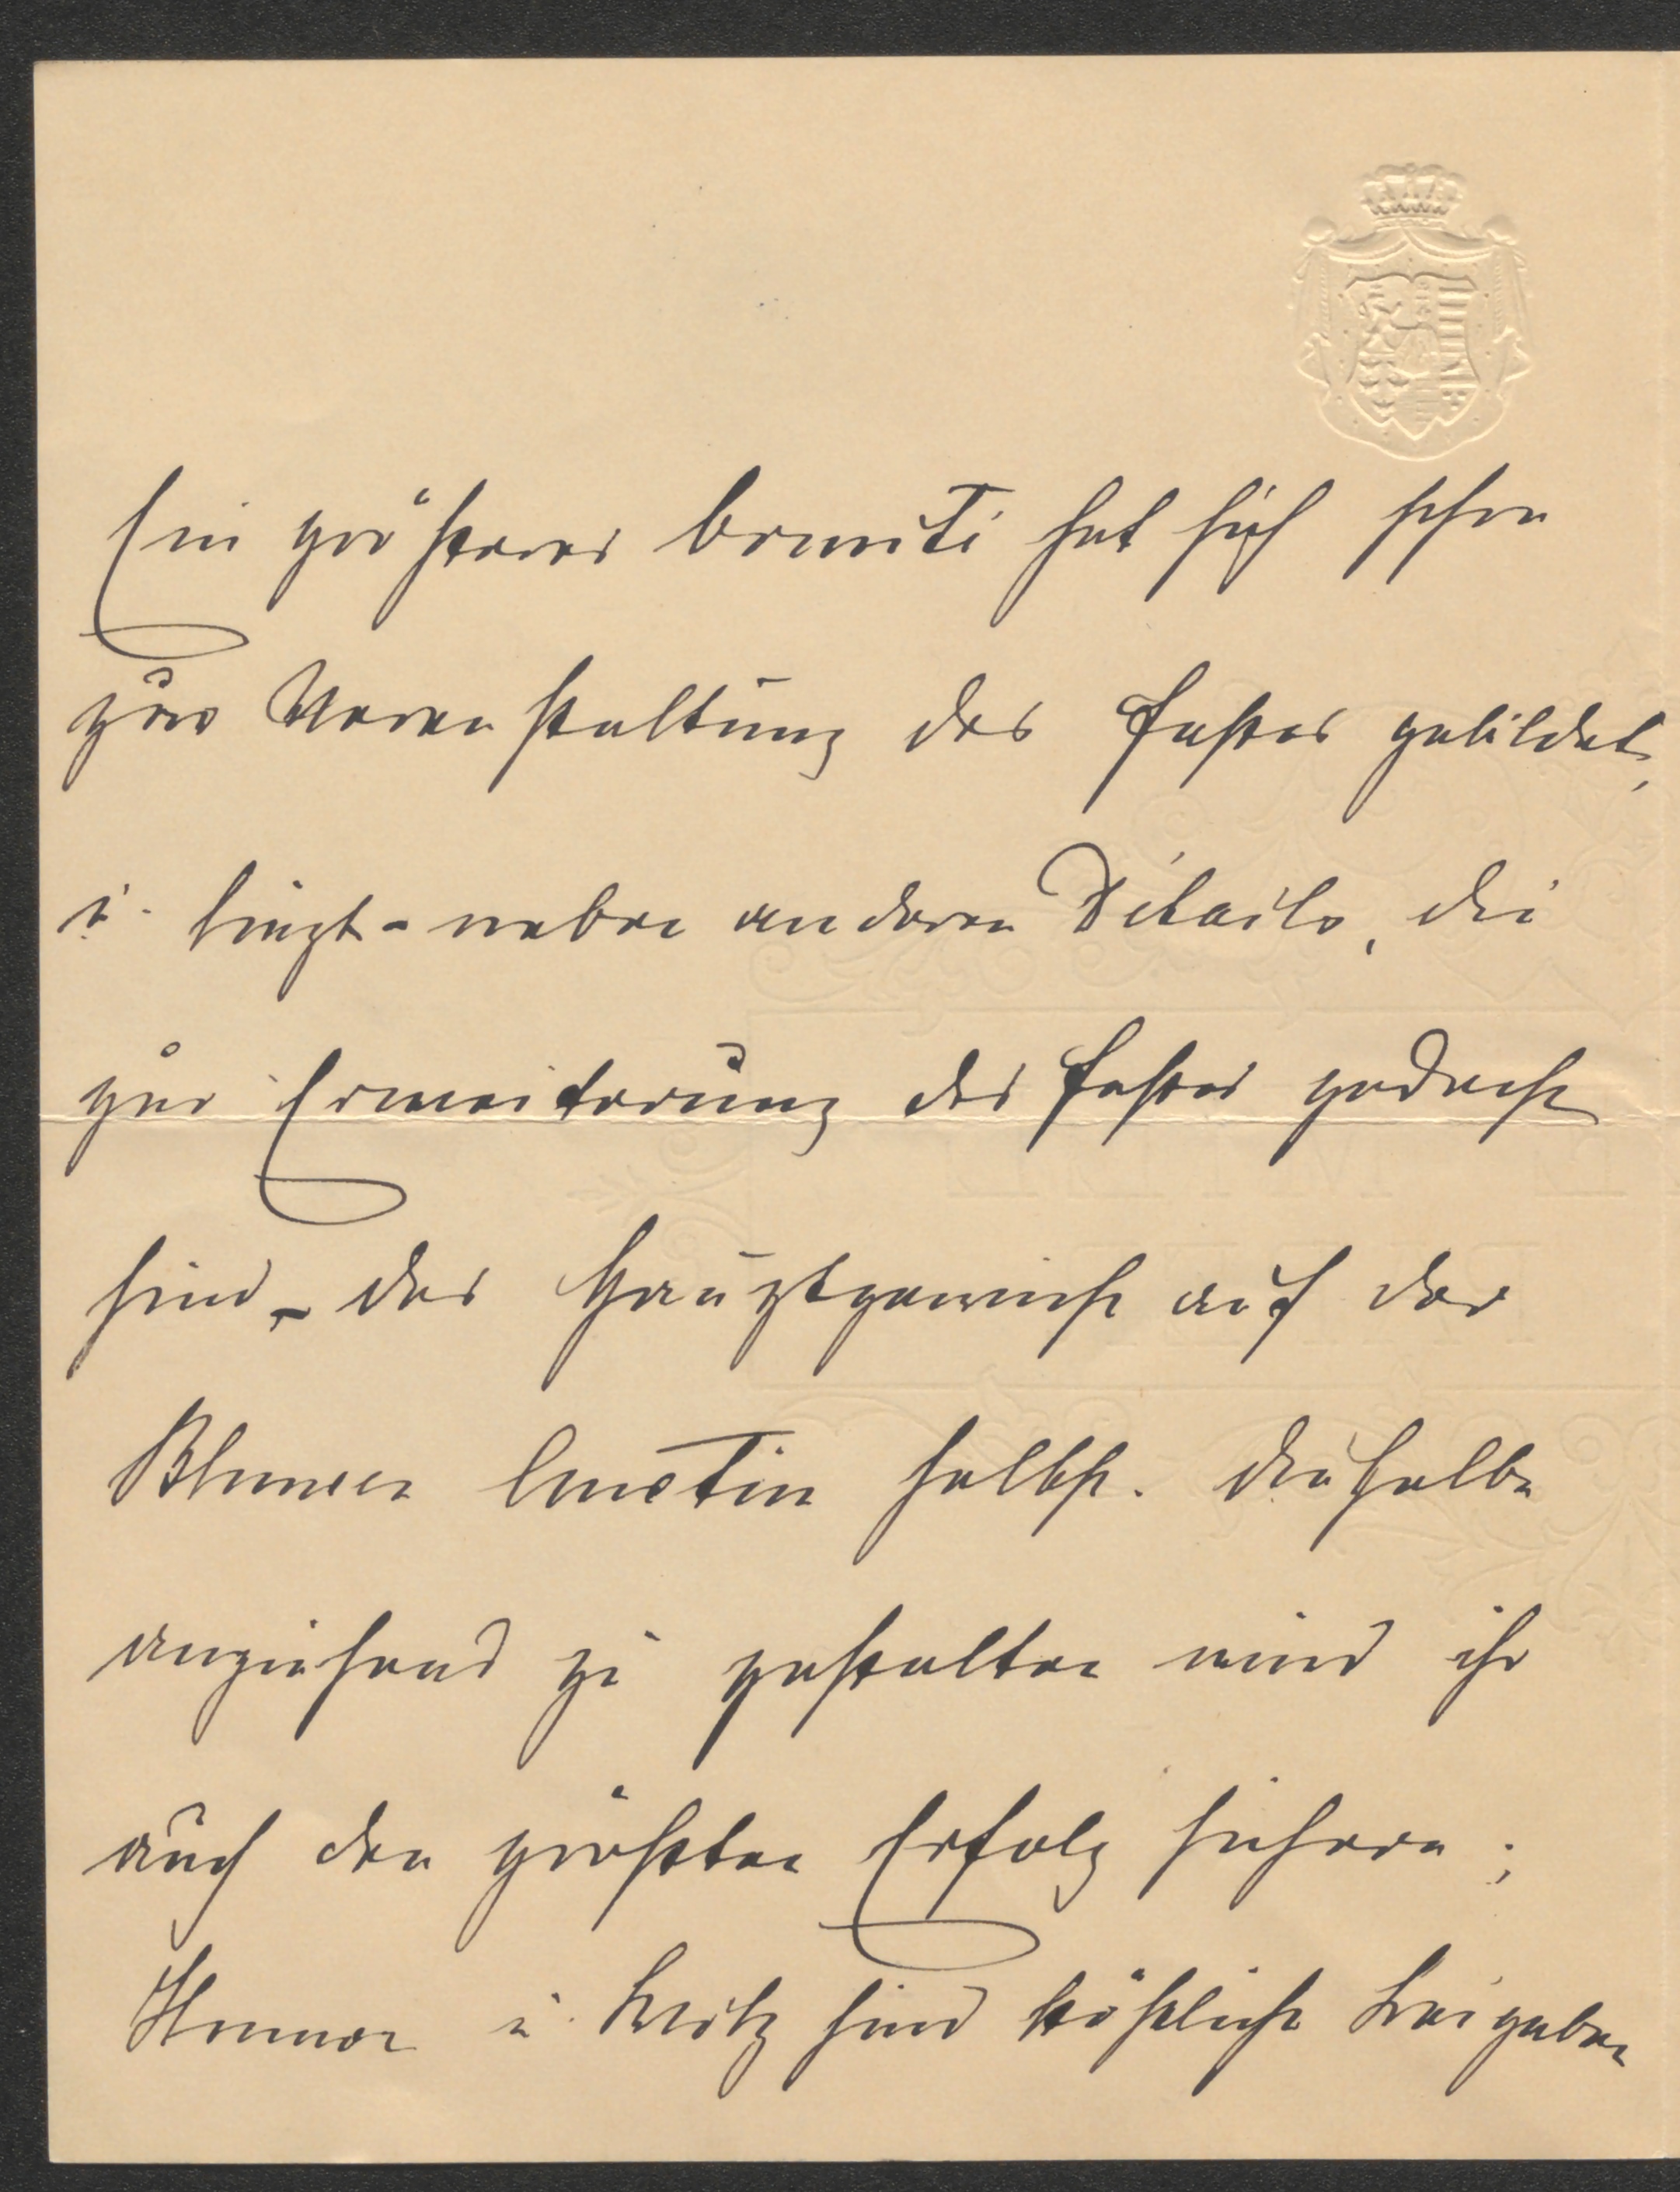 Ein größeres Comité hat sich schon
zur Veranstaltung des Festes gebildet,
u. liegt - neben anderen Détails, die
zur Erweiterung des Festes gedacht
sind - das Hauptgewicht auf der
Blumen Auction selbst. Dieselbe
anziehend zu gestalten wird ihr
auch den größten Erfolg sichern;
Humor u. Witz sind köstliche Beigaben